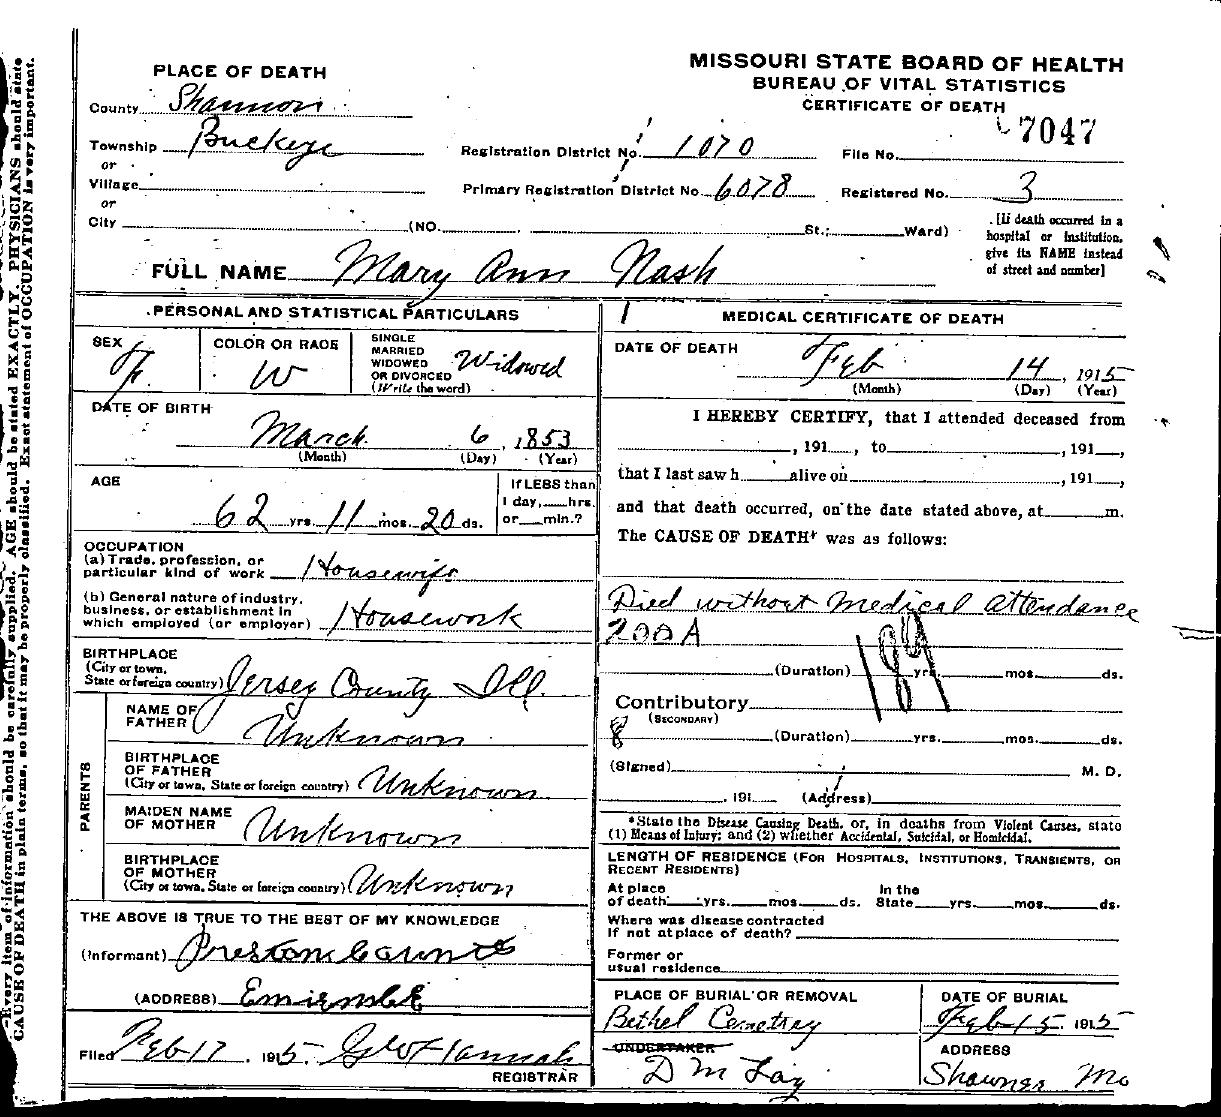 MISSOURI STATE BOARD OF HEALTH
BUREAU OF VITAL STATISTICS
CERTIFICATE OF DEATH
PLACE OF DEATH
County Shannon
Township Buckeye
or
Village
or
City (NO. St.; Ward)
Registration District No. 1070
File No. 7047
Primary Registration District No. 6078
Registered No. 3
[If death occurred in a
hospital or institution,
give its NAME instead
of street and number]
FULL NAME Mary Ann Nash
PERSONAL AND STATISTICAL PARTICULARS
SEX F.
COLOR OR RACE W
SINGLE
MARRIED
WIDOWED
OR DIVORCED
(Write the word)
Widowed
DATE OF BIRTH
March 6, 1853
(Month) (Day) (Year)
AGE
62 yrs. 11 mos. 20 ds.
If LESS than
1 day, hrs.
or min.?
OCCUPATION
(a) Trade, profession, or
particular kind of work Housewife
(b) General nature of industry,
business, or establishment in
which employed (or employer) Housework
BIRTHPLACE
(City or town,
State or foreign country) Jersey County Ill.
PARENTS
NAME OF
FATHER Unknown
BIRTHPLACE
OF FATHER
(City or town, State or foreign country) Unknown
MAIDEN NAME
OF MOTHER Unknown
BIRTHPLACE
OF MOTHER
(City or town, State or foreign country) Unknown
THE ABOVE IS TRUE TO THE BEST OF MY KNOWLEDGE
(Informant) Preston Counts
(ADDRESS)
Filed Feb 17, 1915 Geo Hannah
REGISTRAR
MEDICAL CERTIFICATE OF DEATH
DATE OF DEATH Feb 14, 1915
(Month) (Day) (Year)
I HEREBY CERTIFY, that I attended deceased from
, 191 , to , 191 ,
that I last saw h alive on , 191 ,
and that death occurred, on the date stated above, at m.
The CAUSE OF DEATH* was as follows:
Died without Medical attendance
200A
189
(Duration) yrs. mos. ds.
Contributory
(SECONDARY)
8
(Duration) yrs. mos. ds.
(Signed) M. D.
, 191 (Address)
*State the Disease Causing Death, or, in deaths from Violent Causes, state
(1) Means of Injury; and (2) whether Accidental, Suicidal, or Homicidal.
LENGTH OF RESIDENCE (FOR HOSPITALS, INSTITUTIONS, TRANSIENTS, OR
RECENT RESIDENTS)
At place
of death yrs. mos. ds.
In the
State yrs. mos. ds.
Where was disease contracted
If not at place of death?
Former or
usual residence
PLACE OF BURIAL OR REMOVAL
Bethel Cemetray
DATE OF BURIAL
Feb 15 1915
UNDERTAKER
D M Lay
ADDRESS
Shawnee Mo
—Every item of information should be carefully supplied. AGE should be stated EXACTLY. PHYSICIANS should state
CAUSE OF DEATH in plain terms, so that it may be properly classified. Exact statement of OCCUPATION is very important.